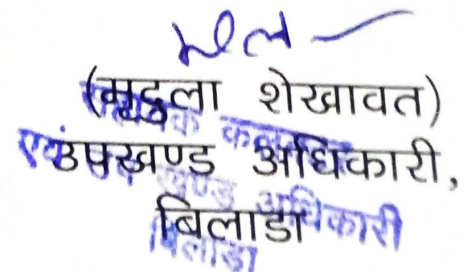 (मृदुला शेखावत)
उपखण्ड अधिकारी,
बिलाडा
एवं उप खण्ड अधिकारी
बिलाडा